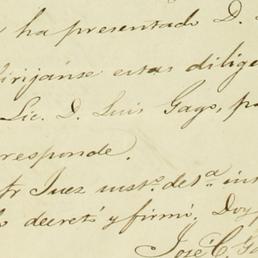 ha presentado D.
dirijánse estas dilige
Lic. D. Luis Gago, pa
responde.
Juez inst.º de 1.ª in
decretó y firmó. Doy
José C.